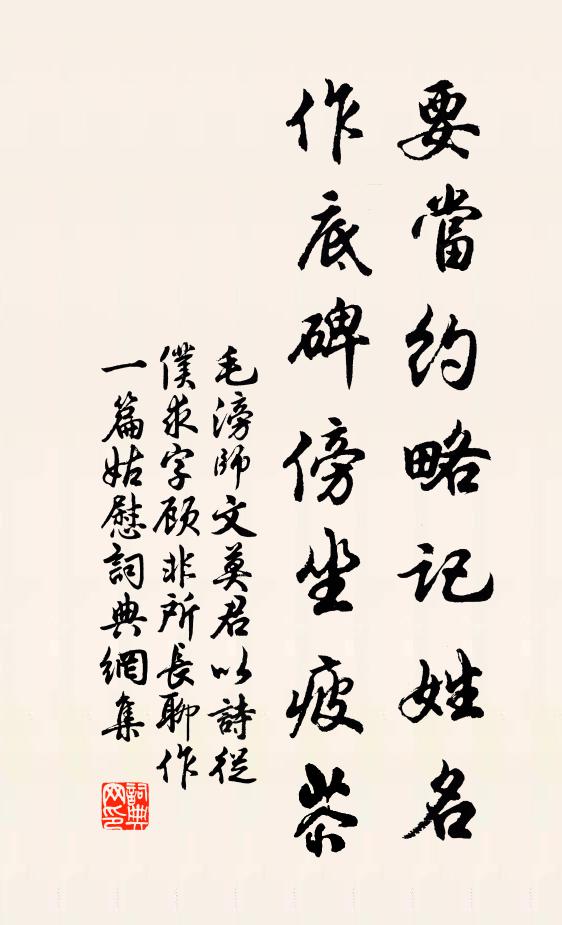 要當約略記姓名
作底碑傍坐疲苶
毛滂師文莫君以詩從
僕求字顧非所長聊作
一篇姑慰詞典網集
詞典网印